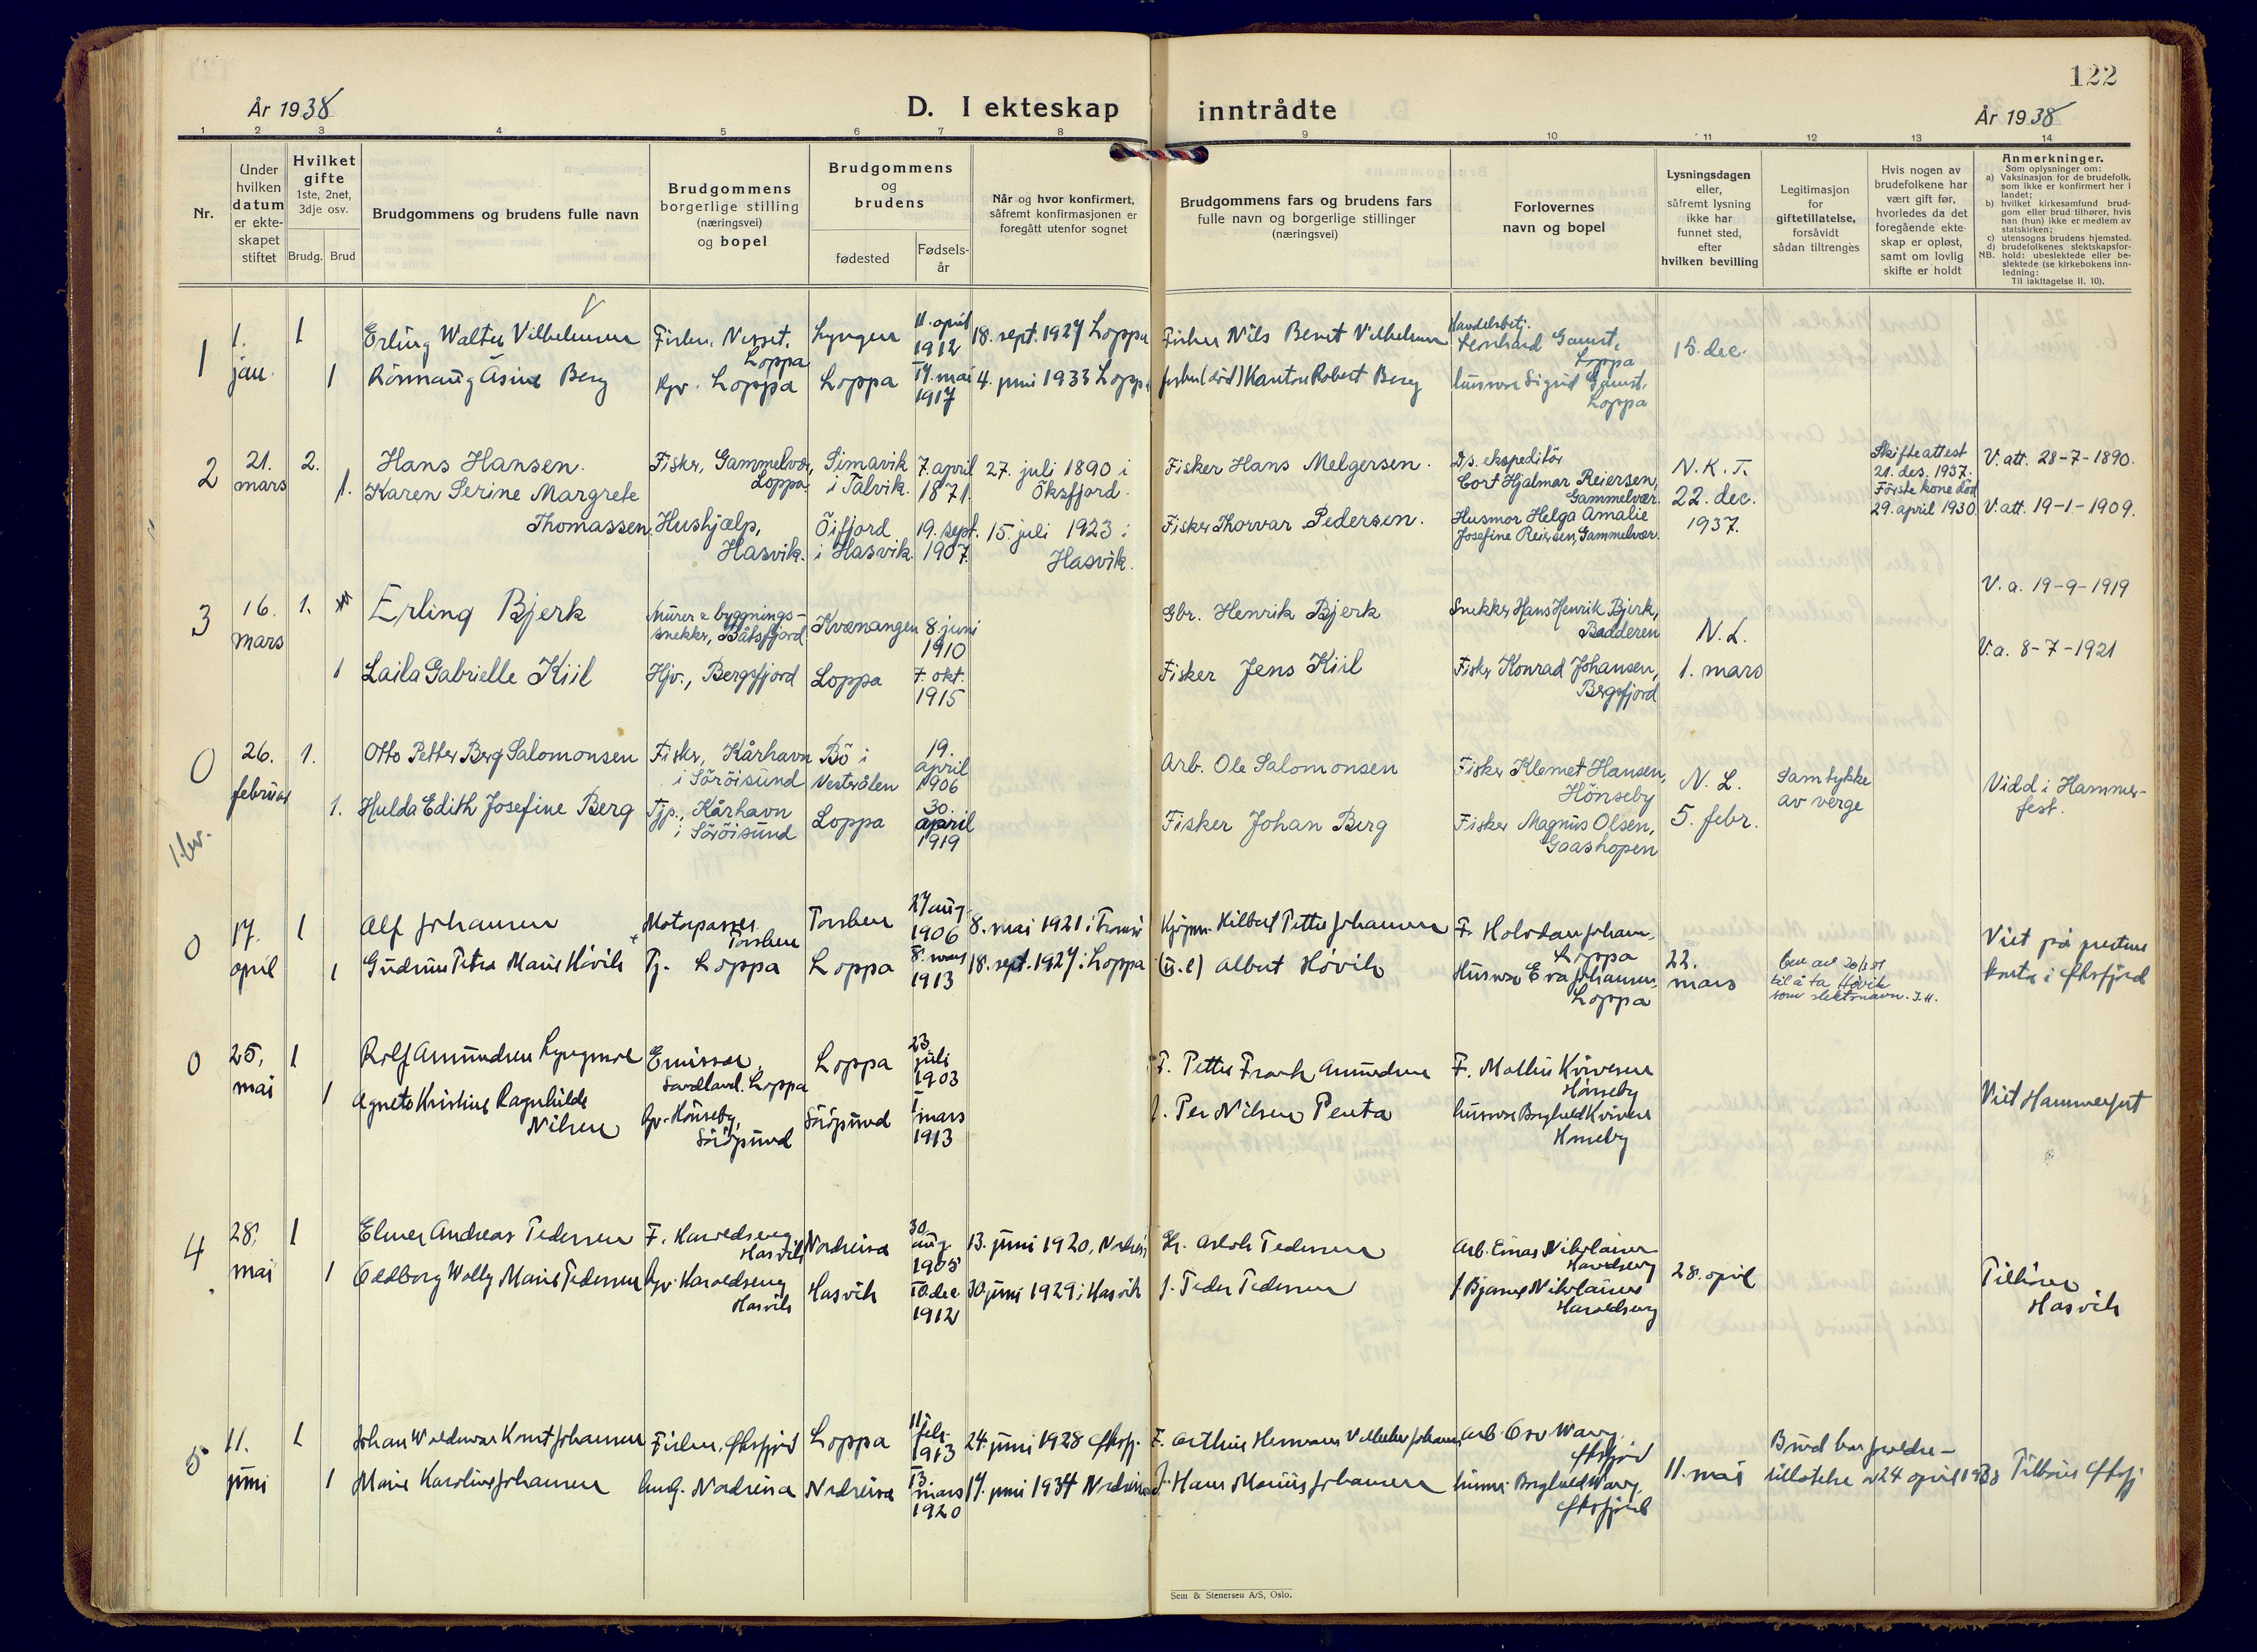 122
År 1938
D. I ekteskap inntrådte
År 1938
1 2 3 4 5 6 7 8 9 10 11 12 13 14
Nr.
Under hvilken datum er ekte-skapet stiftet
Hvilket gifte
1ste, 2net, 3dje osv.
Brudg. Brud
Brudgommens og brudens fulle navn
Brudgommens borgerlige stilling (næringsvei) og bopel
Brudgommens og brudens
fødested
Fødsels-år
Når og hvor konfirmert, såfremt konfirmasjonen er foregått utenfor sognet
Brudgommens fars og brudens fars fulle navn og borgerlige stillinger (næringsvei)
Forlovernes navn og bopel
Lysningsdagen eller, såfremt lysning ikke har funnet sted, efter hvilken bevilling
Legitimasjon for giftetillatelse, forsåvidt sådan tiltrenges
Hvis nogen av brudefolkene har vært gift før, hvorledes da det foregående ekte-skap er opløst, samt om lovlig skifte er holdt
Anmerkninger.
Som oplysninger om:
a) Vaksinasjon for de brudefolk, som ikke er konfirmert her i landet;
b) hvilket kirkesamfund brud-gom eller brud tilhører, hvis han (hun) ikke er medlem av statskirken;
c) utensogns brudens hjemsted.
d) brudefolkenes slektskapsfor-hold: ubeslektede eller be-slektede (se kirkebokens inn-ledning:
NB.
Til iakttagelse II. 10).
1 1. jan. 1 Erling Walter Vilhelmsen Fisker, Loppa Lyngen 11. april 1912 18. sept. 1927 Loppa Fisker Nils Bernt Vilhelmsen Handelsbetj. Leonhard Gamst, Loppa 15. dec.
1 Rönnaug Asine Berg Loppa Loppa 17. mai 1917 4. juni 1933 Loppa fisker (död) Kanton Robert Berg husmor Sigrid Gamst, Loppa
2 21. mars 2. Hans Hansen. Fisker, Gammelvær, Loppa. Simavik i Talvik. 7. april 1871. 27. juli 1890 i Öksfjord. Fisker Hans Melgersen. D/s. ekspeditör Cort Hjalmar Reiersen, Gammelvær. N.K.T. 22. dec. 1937. Skifteattest 21. des. 1937. Förste kone död 29. april 1930. V. att. 28-7-1890.
1. Karen Serine Margrete Thomassen. Hushjælp, Hasvik. Öifjord i Hasvik. 19. sept. 1907. 15. juli 1923 i Hasvik. Fisker Thorvar Pedersen. Husmor Helga Amalie Josefine Reiersen, Gammelvær. V. att. 19-1-1909.
3 16. mars 1. Erling Bjerk Murer & byggnings-snekker, Båtsfjord Kvænangen 8. juni 1910 Gbr. Henrik Bjerk Snekker Hans Henrik Bjerk, Badderen N.L. 1. mars V. a. 19-9-1919
1 Laila Gabrielle Kiil Hjv., Bergsfjord Loppa 7. okt. 1915 Fisker Jens Kiil Fisker Konrad Johansen, Bergsfjord V. a. 8-7-1921
0 26. februar 1. Otto Petter Berg Salomonsen Fisker, Kårhavn i Söröisund Bö i Vesterålen 19. april 1906 Arb. Ole Salomonsen Fisker Klemet Hansen, Hönseby N. L. 5. febr. Samtykke av verge Vidd i Hammer-fest.
1. Hulda Edith Josefine Berg Tjp., Kårhavn i Söröisund Loppa 30. april 1919 Fisker Johan Berg Fisker Magnus Olsen, Gaashopen
0 17. april 1 Alf Johansen Motorpasser Torsken Torsken 27 aug. 1906 8. mai 1921 i Tromsö Kjöpm. Hilbert Petter Johansen F. Halvdan Johans. Loppa 22. mars Viet på prestens kontor i Öksfjord
1 Gudrun Petra Marie Hövik Tj. Loppa Loppa 8. mars 1913 18. sept. 1927 i Loppa (u.e) Albert Hövik Husmor Eva Johansen, Loppa til å ta Høvik som slektsnavn. J.H.
0 25. mai 1 Rolf Amundsen Lyngmoe Emissær, Sandland. Loppa Loppa 23 juli 1903 F. Petter Frank Amundsen F. Mathis Kvivesen Hönseby Viet Hammerfest
1 Agnete Kristine Ragnhilde Nilsen Hönseby, Söröysund Söröysund 1 mars 1913 f. Per Nilsen Penta husmor Borghild Kvivesen
4 28. mai 1 Elmer Andreas Pedersen F. Hasvik Nordreisa 30. aug. 1905 13. juni 1920, Nordreisa Pedersen Arb. Einar Nikolaisen 28. april Tilhörer Hasvik
1 Oddborg Wally Marie Pedersen Hasvik Hasvik 10. dec 1912 30 juni 1929 i Hasvik f. Peder Pedersen f Bjarne Nikolaisen
5 11. juni 1 Johan Waldemar Kornt Johansen Fisker, Öksfjord Loppa 11 1913 24. juni 1928 Öksfj. F. Arthur Hermann Vilhelm Johansen Arb. Warg, Öksfjord 11. mai Brud har foreldre-tillatelse av 24 april 1938 Öksfj
1 Marie Karoline Johansen Nordreisa Nordreisa 13. mars 1920 17. juni 1934 Nordreisa f. Hans Marius Johansen Borghild Warg, Öksfjord
Sem & Stenersen A/S, Oslo.